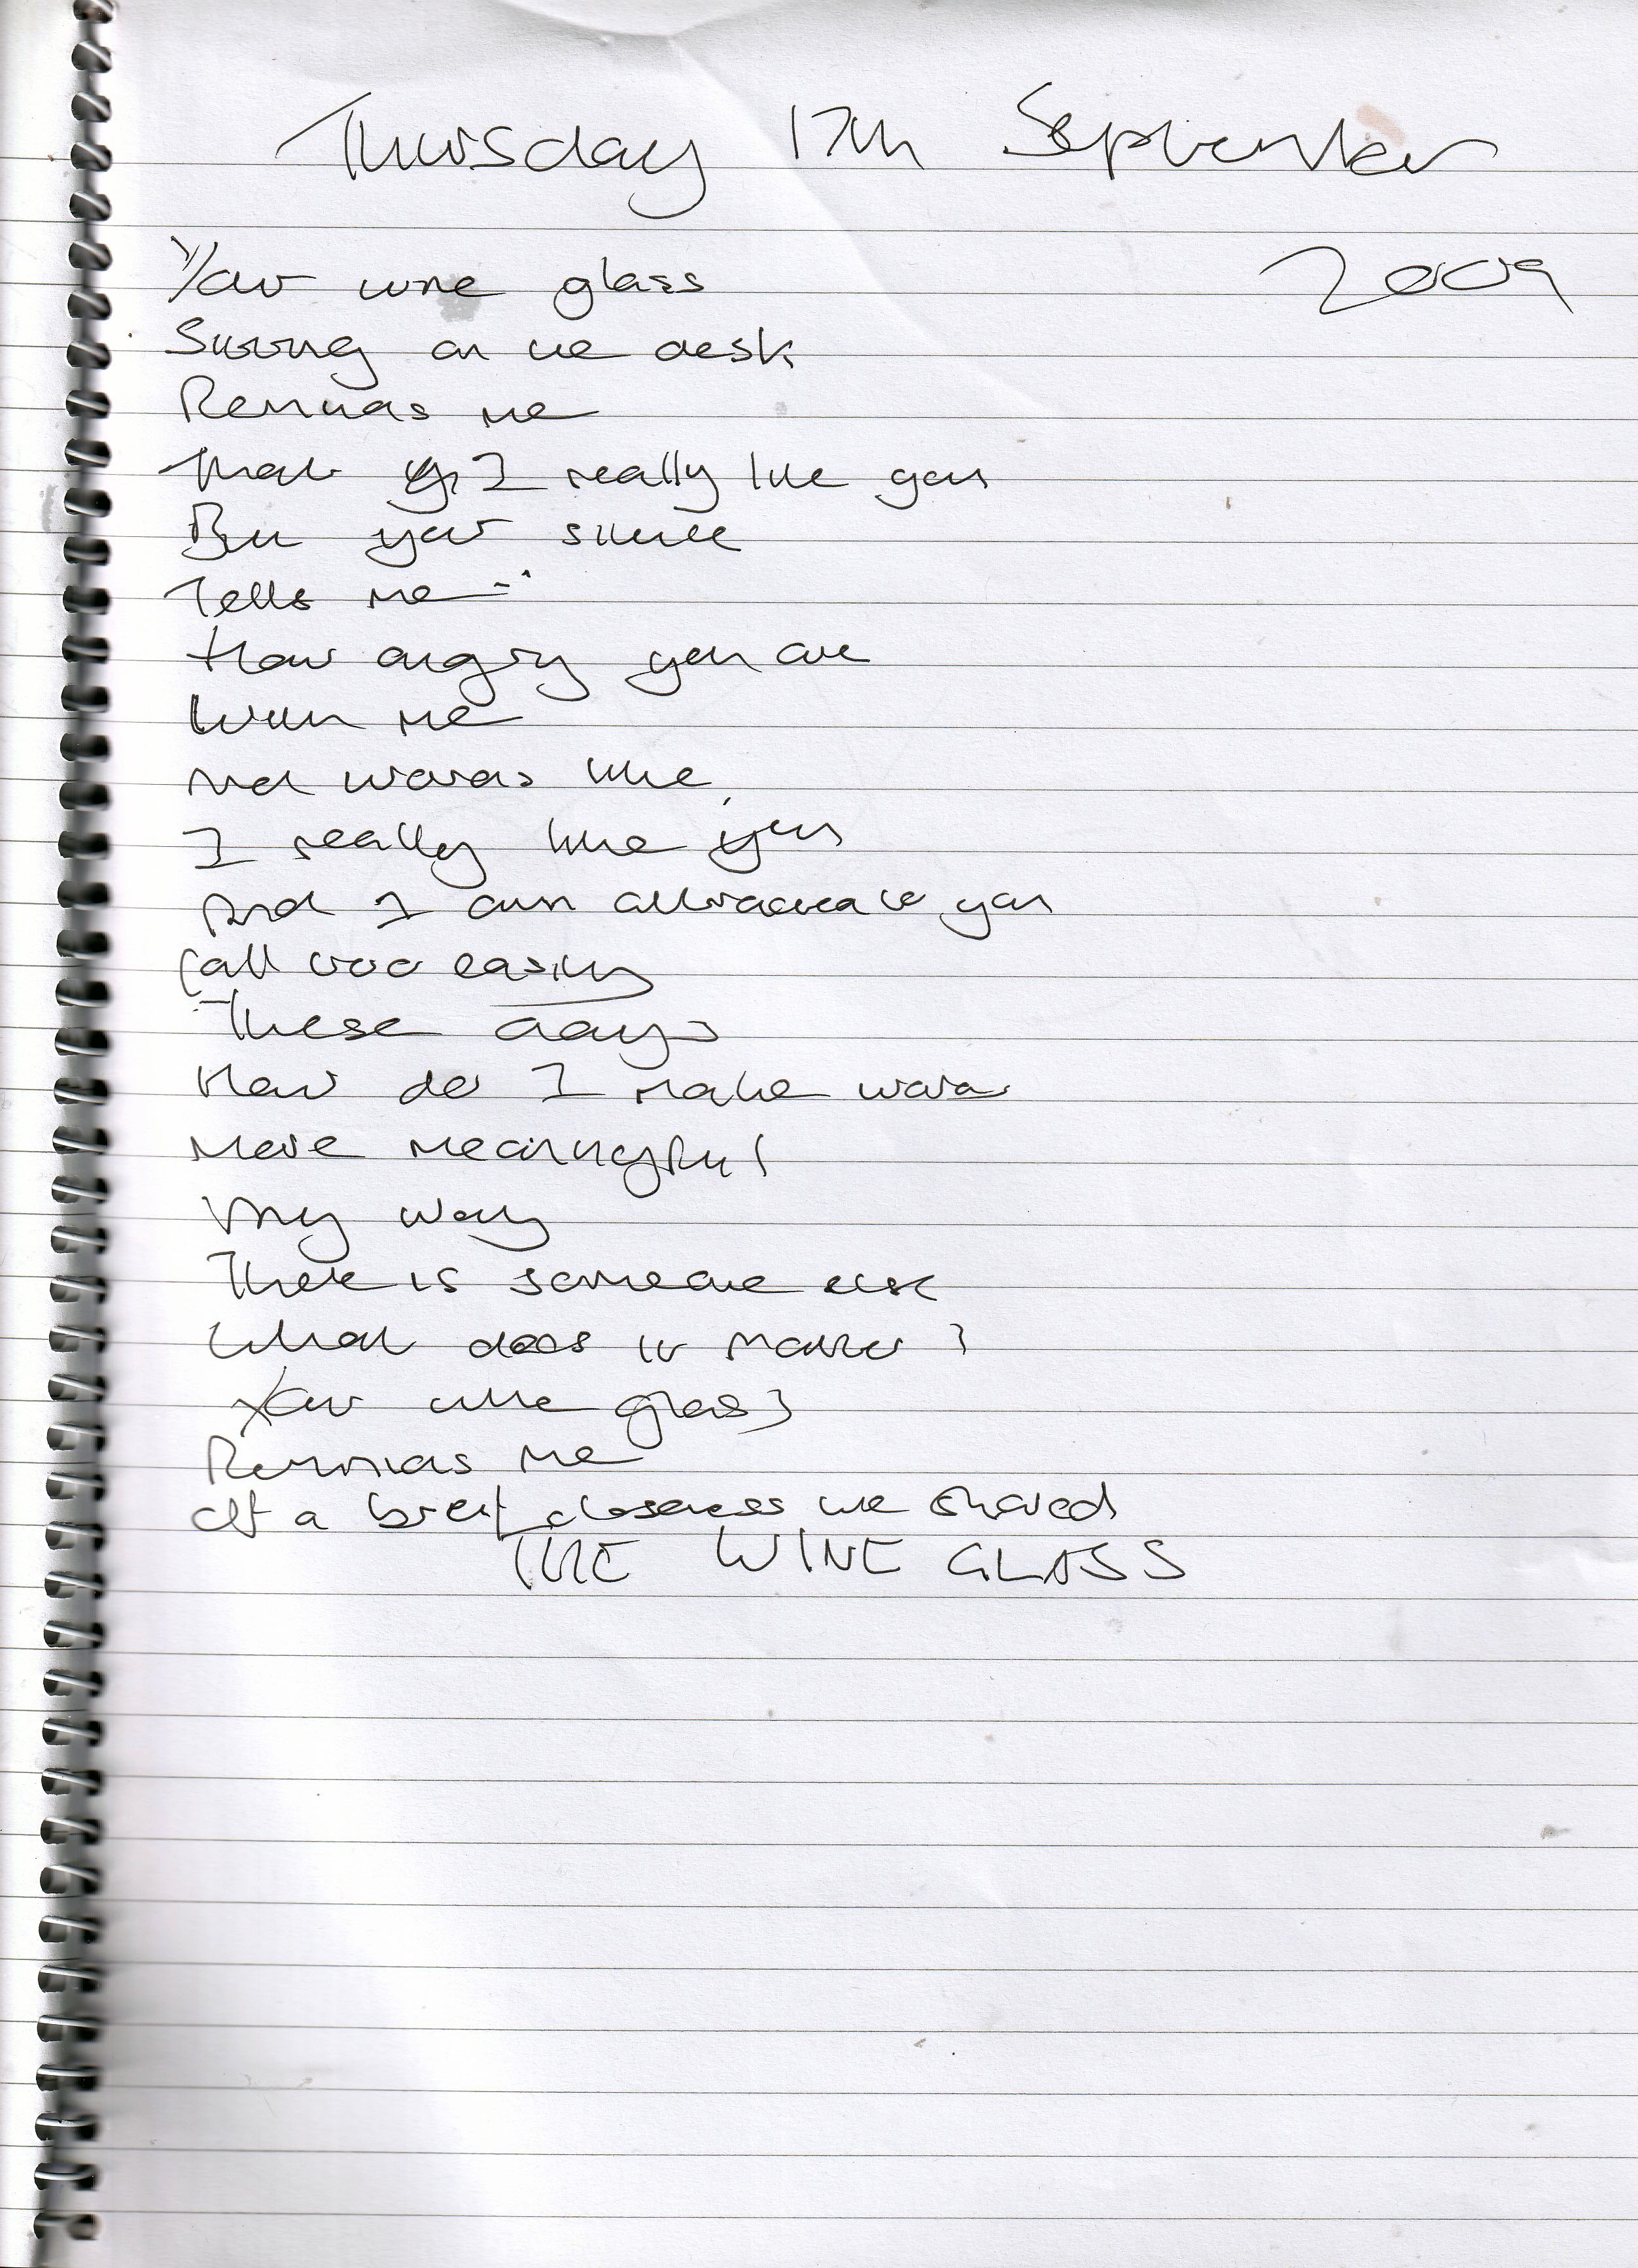 Thursday 17th September
2009
Your wine glass
Sitting on the desk
Reminds me
That I really like you
But your silence
Tells me
How angry you are
With me
And words like,
I really like you
And I am attracted to you
Fall too easily
These days
How do I make word
More meaningful
Any way
There is someone else
What does it matter?
Your wine glass
Reminds me
Of a breif closeness we shared
THE WINE GLASS